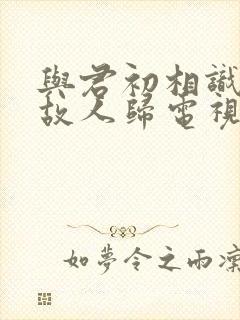 與君初相識
故人歸電視
如夢令之雨潆